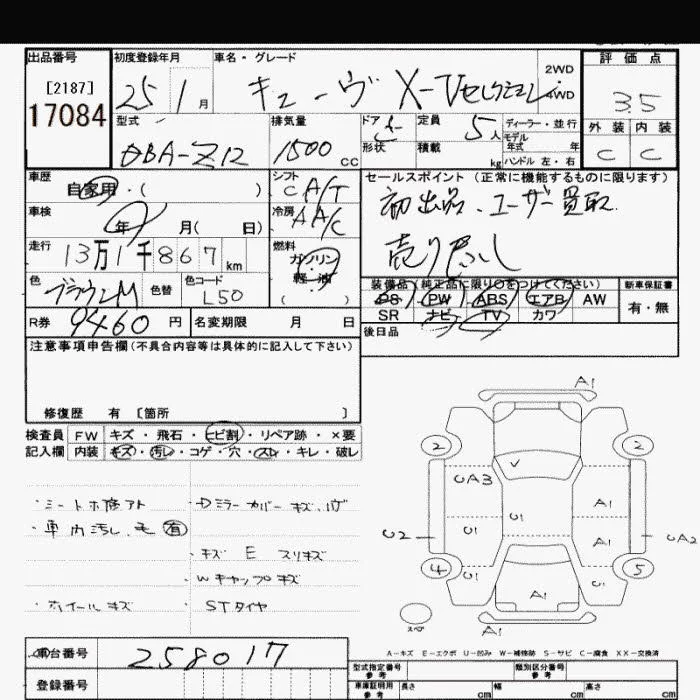 出品番号 初度登録年月 車名・グレード 評価点
[2187]
17084
25 1月
キューヴ X-Vセレクション
2WD
・4WD
3.5
外装 内装
C C
型式 排気量 ドア 定員 ディーラー・並行
DBA-Z12 1500 cc
形状 積載 5人 kg
モデル年式 年
ハンドル 左・右
車歴 シフト セールスポイント(正常に機能するものに限ります)
自家用・( ) C A/T
初出品、ユーザー買取
車検 冷房
年 月( 日) A A/C
売り尽くし
走行 燃料
13万1千867km ガソリン・軽油( )
色 色替 色コード
ブラウンM L50
装備品(純正品に限り○をつけてください) 新車保証書
PS PW ABS エアB AW 有・無
SR ナビ TV カワ
R券 9460円 名変期限 月 日
後日品
注意事項申告欄(不具合内容等は具体的に記入して下さい)
修復歴 有 [箇所 ]
検査員 FW キズ・飛石・ヒビ割・リペア跡・×要
記入欄 内装 キズ・汚レ・コゲ・穴・スレ・キレ・破レ
・シート ホ修アト ・Dミラーカバー キズ、
・車内汚し、毛 有
・キズ E スリキズ
・Wキャップキズ
・ホイールキズ ・STタイヤ
A1
2 2
UA3 A1
U2 U1 U1 A1 UA2
4 U1 U1 5
A1
スペア
A1
A-キズ E-エクボ U-凹み W-補修跡 S-サビ C-腐食 XX-交換済
車台番号 258017
登録番号
型式指定番号 参考 類別区分番号 参考
車庫証明用 参考 長さ cm 幅 cm 高さ cm